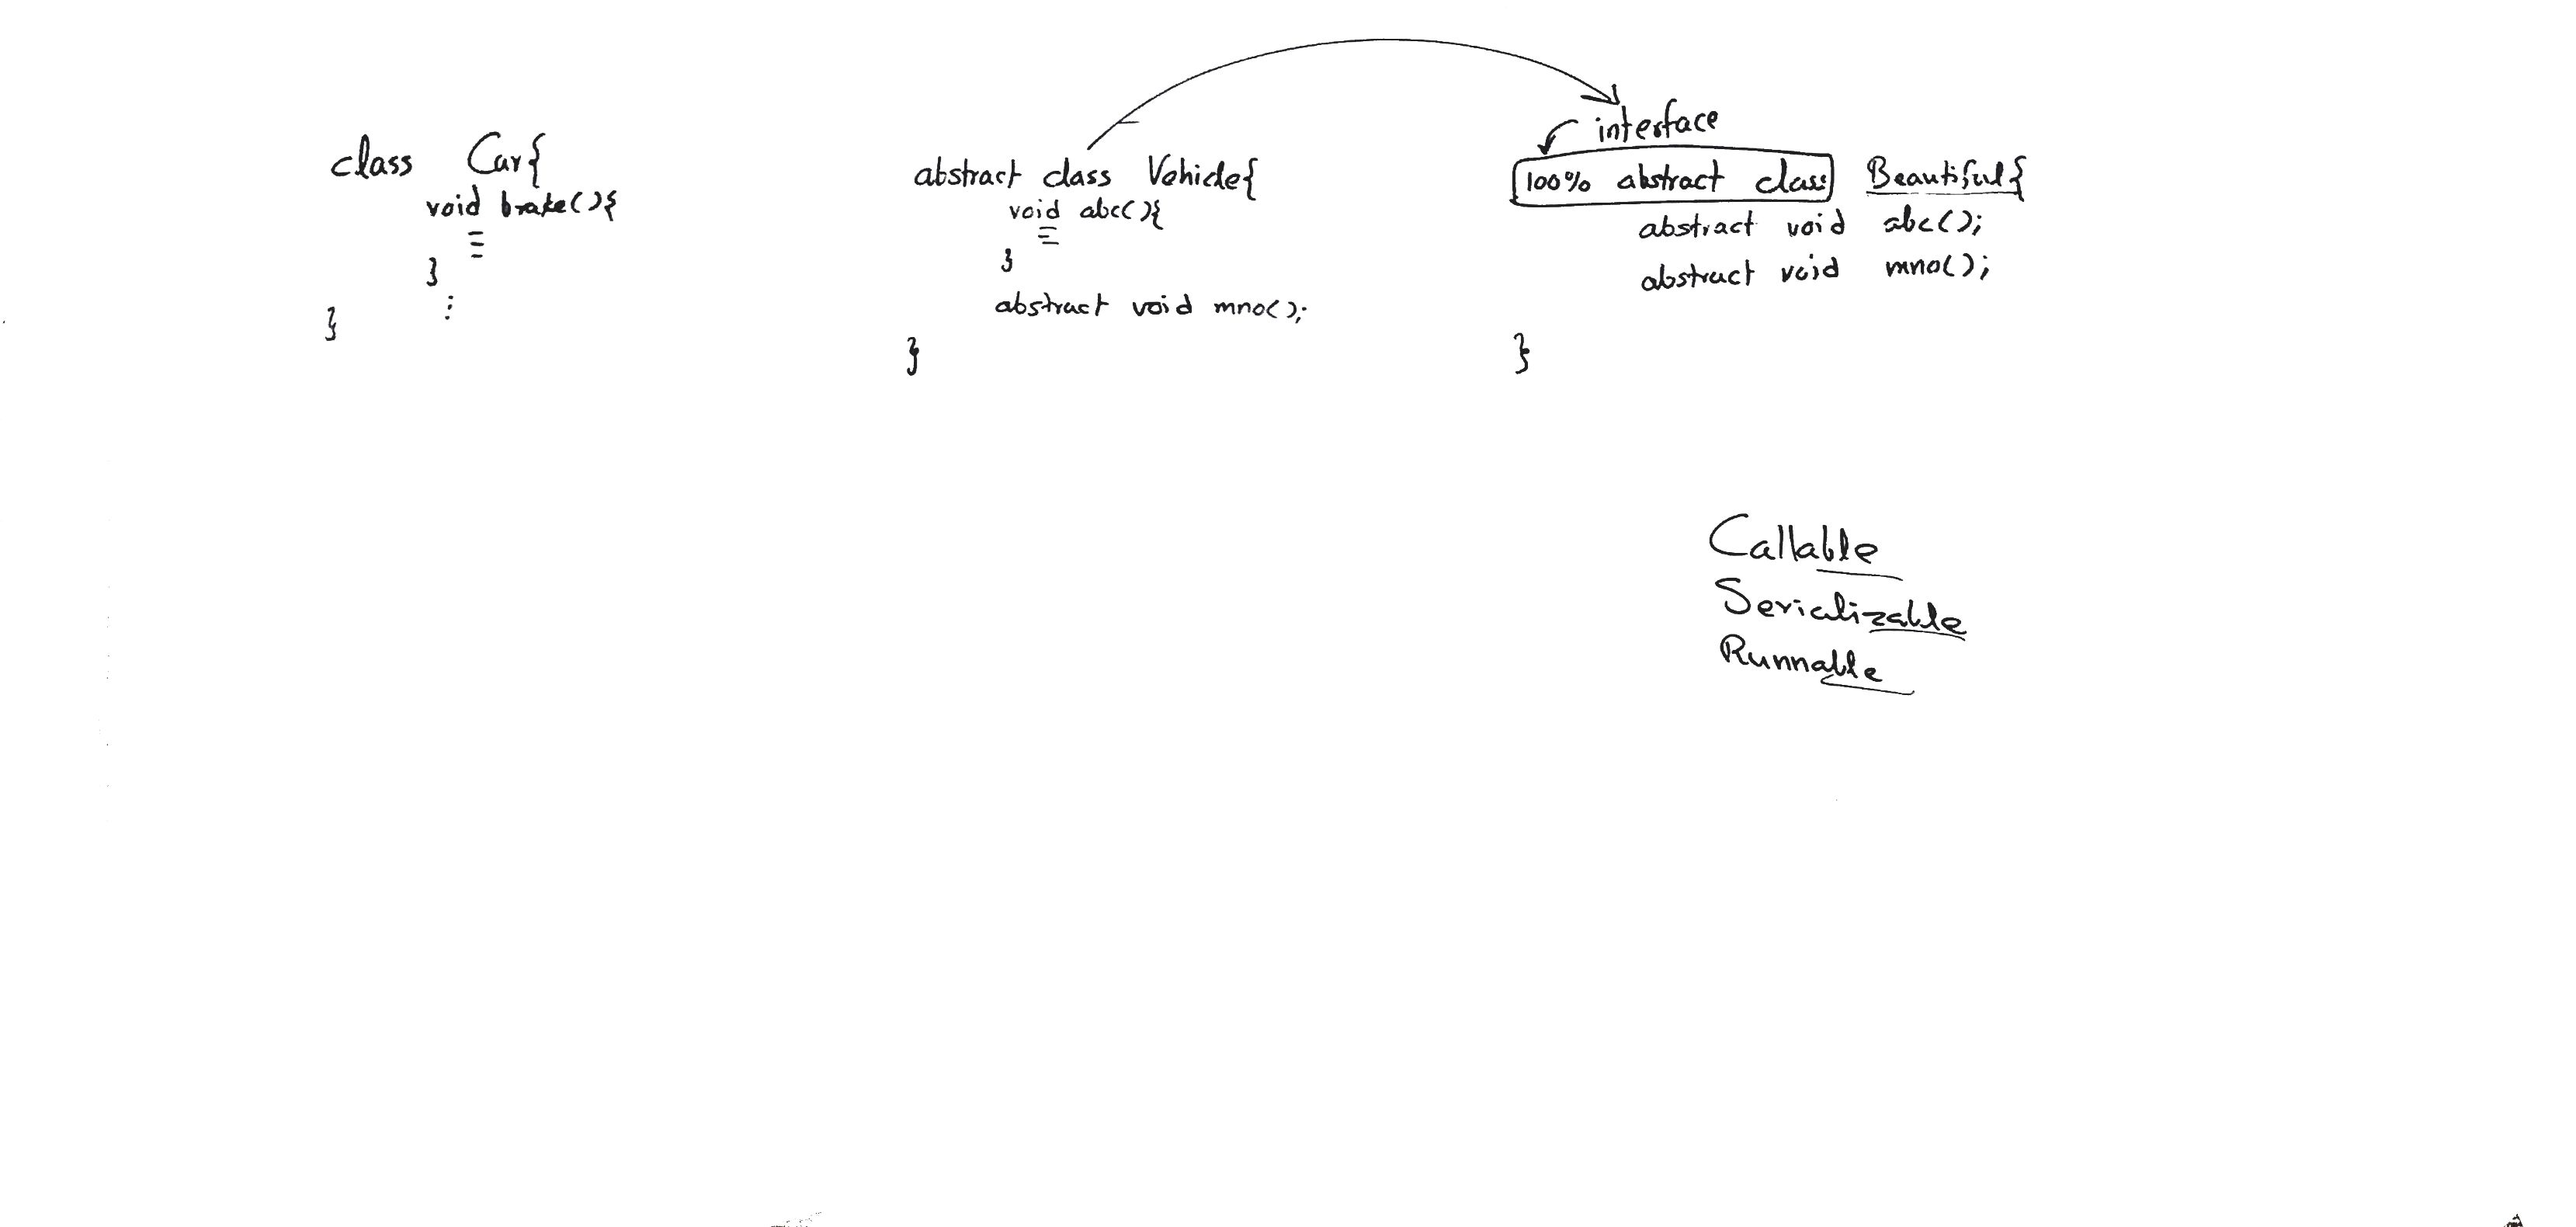 class Car{
void brake(){
}
}
abstract class Vehicle{
void abc(){
}
abstract void mno();
}
interface
100% abstract class Beautiful{
abstract void abc();
abstract void mno();
}
Callable
Serializable
Runnable